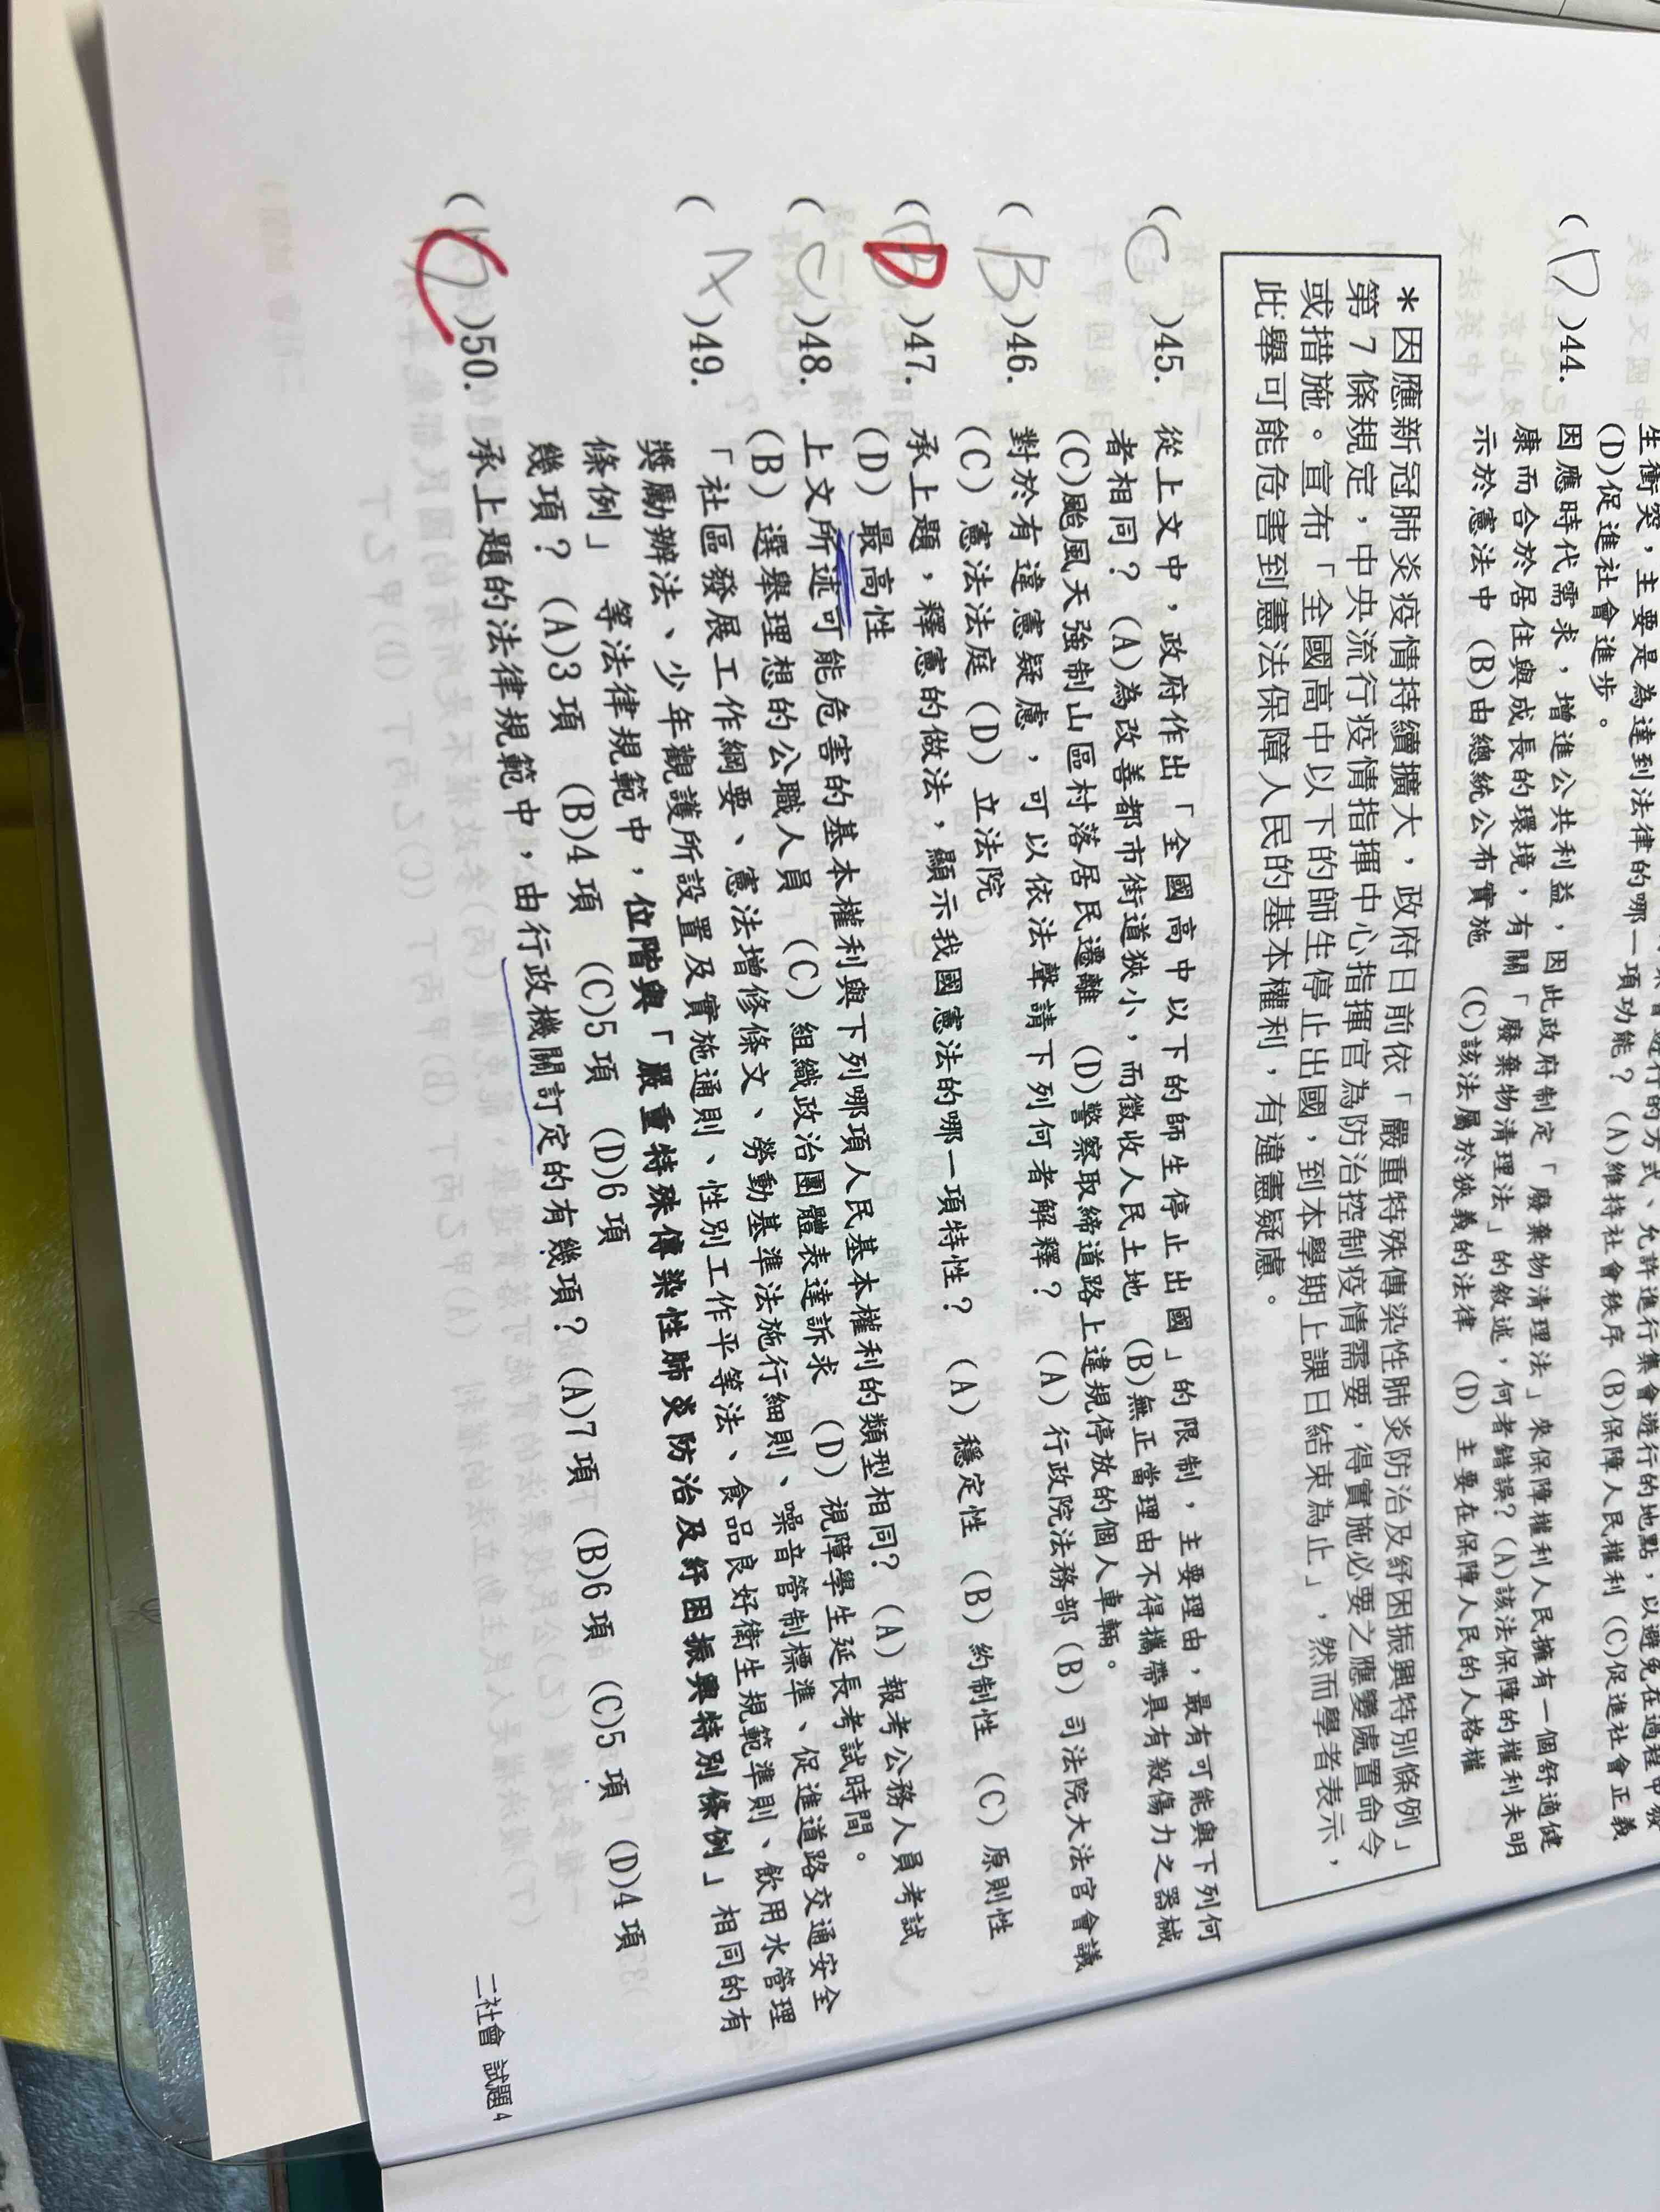 生衝突，主要是為達到法律的哪一項功能？(A)維持社會秩序 (B)保障人民權利 (C)促進社會正義
(D)促進社會進步。
(D)44. 因應時代需求，增進公共利益，因此政府制定「廢棄物清理法」來保障權利人民擁有一個舒適健
康而合於居住與成長的環境，有關「廢棄物清理法」的敘述，何者錯誤？(A)該法保障的權利未明
示於憲法中 (B)由總統公布實施 (C)該法屬於狹義的法律 (D) 主要在保障人民的人格權
＊因應新冠肺炎疫情持續擴大，政府日前依「嚴重特殊傳染性肺炎防治及紓困振興特別條例」
第 7 條規定，中央流行疫情指揮中心指揮官為防治控制疫情需要，得實施必要之應變處置命令
或措施。宣布「全國高中以下的師生停止出國，到本學期上課日結束為止」，然而學者表示，
此舉可能危害到憲法保障人民的基本權利，有違憲疑慮。
(C)45. 從上文中，政府作出「全國高中以下的師生停止出國」的限制，主要理由，最有可能與下列何
者相同？(A)為改善都市街道狹小，而徵收人民土地 (B)無正當理由不得攜帶具有殺傷力之器械
(C)颱風天強制山區村落居民遷離 (D)警察取締道路上違規停放的個人車輛。
(B)46. 對於有違憲疑慮，可以依法聲請下列何者解釋？ (A) 行政院法務部 (B) 司法院大法官會議
(C) 憲法法庭 (D) 立法院
(D)47. 承上題，釋憲的做法，顯示我國憲法的哪一項特性？ (A) 穩定性 (B) 約制性 (C) 原則性
(D) 最高性
(C)48. 上文所述可能危害的基本權利與下列哪項人民基本權利的類型相同？(A) 報考公務人員考試
(B) 選舉理想的公職人員 (C) 組織政治團體表達訴求 (D) 視障學生延長考試時間。
(A)49. 「社區發展工作綱要、憲法增修條文、勞動基準法施行細則、噪音管制標準、促進道路交通安全
獎勵辦法、少年觀護所設置及實施通則、性別工作平等法、食品良好衛生規範準則、飲用水管理
條例」 等法律規範中，位階與「嚴重特殊傳染性肺炎防治及紓困振興特別條例」相同的有
幾項？ (A)3 項 (B)4 項 (C)5 項 (D)6 項
(C)50. 承上題的法律規範中，由行政機關訂定的有幾項？(A)7 項 (B)6 項 (C)5 項 (D)4 項
二社會 試題 4